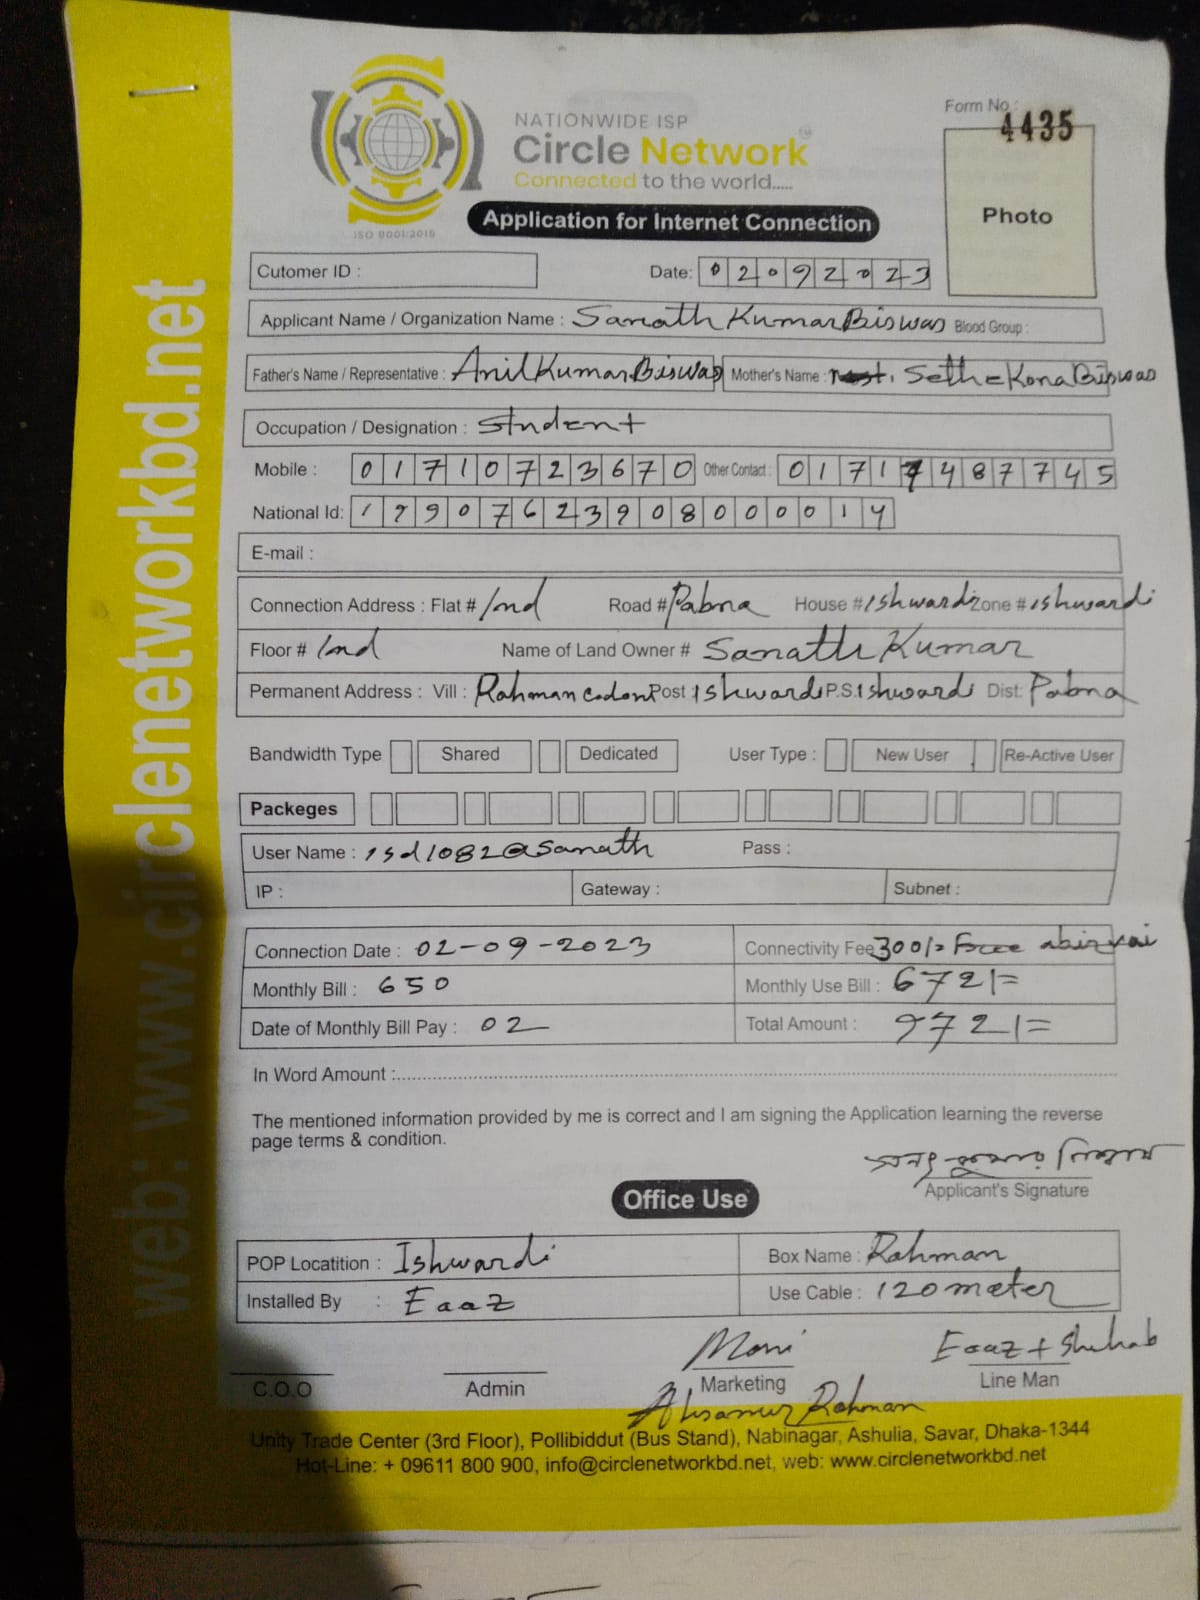 web: www.circlenetworkbd.net
NATIONWIDE ISP
Circle Network
Connected to the world.....
ISO 9001:2015
Form No :
4435
Photo
Application for Internet Connection
Cutomer ID :
Date: 02092023
Applicant Name / Organization Name : Sanath Kumar Biswas Blood Group :
Father's Name / Representative : Anil Kumar Biswas Mother's Name : Kona Biswas
Occupation / Designation : Student
Mobile : 01710723670 Other Contact : 01717487745
National Id: 19907623908000014
E-mail :
Connection Address : Flat # Ind Road # Pabna House # Ishwardi Zone # Ishwardi
Floor # Ind Name of Land Owner # Sanath Kumar
Permanent Address : Vill : Rahman Post : Ishwardi P.S. Ishwardi Dist: Pabna
Bandwidth Type Shared Dedicated User Type : New User Re-Active User
Packeges
User Name : isd1082@sanath Pass :
IP : Gateway : Subnet :
Connection Date : 02-09-2023 Connectivity Fee 300/= Free
Monthly Bill : 650 Monthly Use Bill : 672/=
Date of Monthly Bill Pay : 02 Total Amount : 972/=
In Word Amount :
The mentioned information provided by me is correct and I am signing the Application learning the reverse
page terms & condition.
Applicant's Signature
Office Use
POP Locatition : Ishwardi Box Name : Rahman
Installed By : Eaaz Use Cable : 120 meter
Moni Eaaz + Shihab
C.O.O Admin Marketing Line Man
Rahman
Unity Trade Center (3rd Floor), Pollibiddut (Bus Stand), Nabinagar, Ashulia, Savar, Dhaka-1344
Hot-Line: + 09611 800 900, info@circlenetworkbd.net, web: www.circlenetworkbd.net